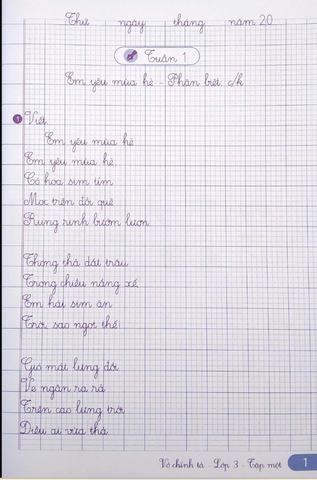 Thứ ngày tháng năm 20
Tuần 1
Em yêu mùa hè - Phân biệt c/k
1 Viết
Em yêu mùa hè
Em yêu mùa hè
Có hoa sim tím
Mọc trên đồi quê
Rung rinh bướm lượn
Thong thả dắt trâu
Trong chiều nắng xế
Em hái sim ăn
Trời sao ngọt thế!
Gió mát lưng đồi
Ve ngân ra rả
Trên cao lưng trời
Diều ai vừa thả
Vở chính tả - Lớp 3 - Tập một 1